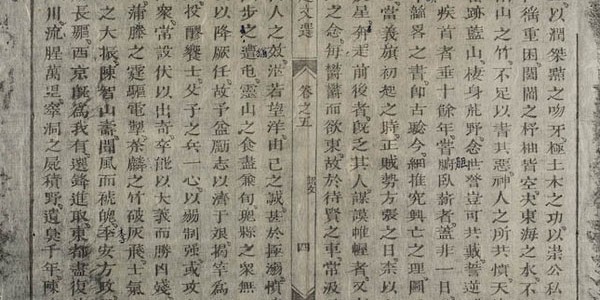 以潤桀黠之吻牙極土木之功以崇公私
徭重困閭閻之杼柚皆空决東海之水不
山之竹不足以書其惡神人之所共憤天
跡藍山棲身荒野念世讐豈可共戴誓逆
疾首者垂十餘年嘗膽臥薪者蓋非一日
韜畧之書卽古騐今細推究興亡之理圖
當義旗初起之時正賊勢方張之日柰以
星奔走前後者旣乏其人謀謨帷幄者又
之念每鬱鬱而欲東故於待賢之車常汲
文選 卷之五 四
人之效茫若望洋由己之誠甚於拯溺憤
步之遭屯靈山之食盡兼旬瑰縣之衆無
以降厥任故予益勵志以濟于艱揭竿為
投醪饗士父子之兵一心以弱制强或攻
衆常設伏以出奇卒能以大義而勝凶殘
蒲藤之霆驅電掣茶麟之竹破灰飛士氣
之大振陳智山壽聞風而褫魄李安方政
長驅西京旣為我有選鋒進取東都盡復
川流腥萬里窣洞之屍積野遺臭千年陳